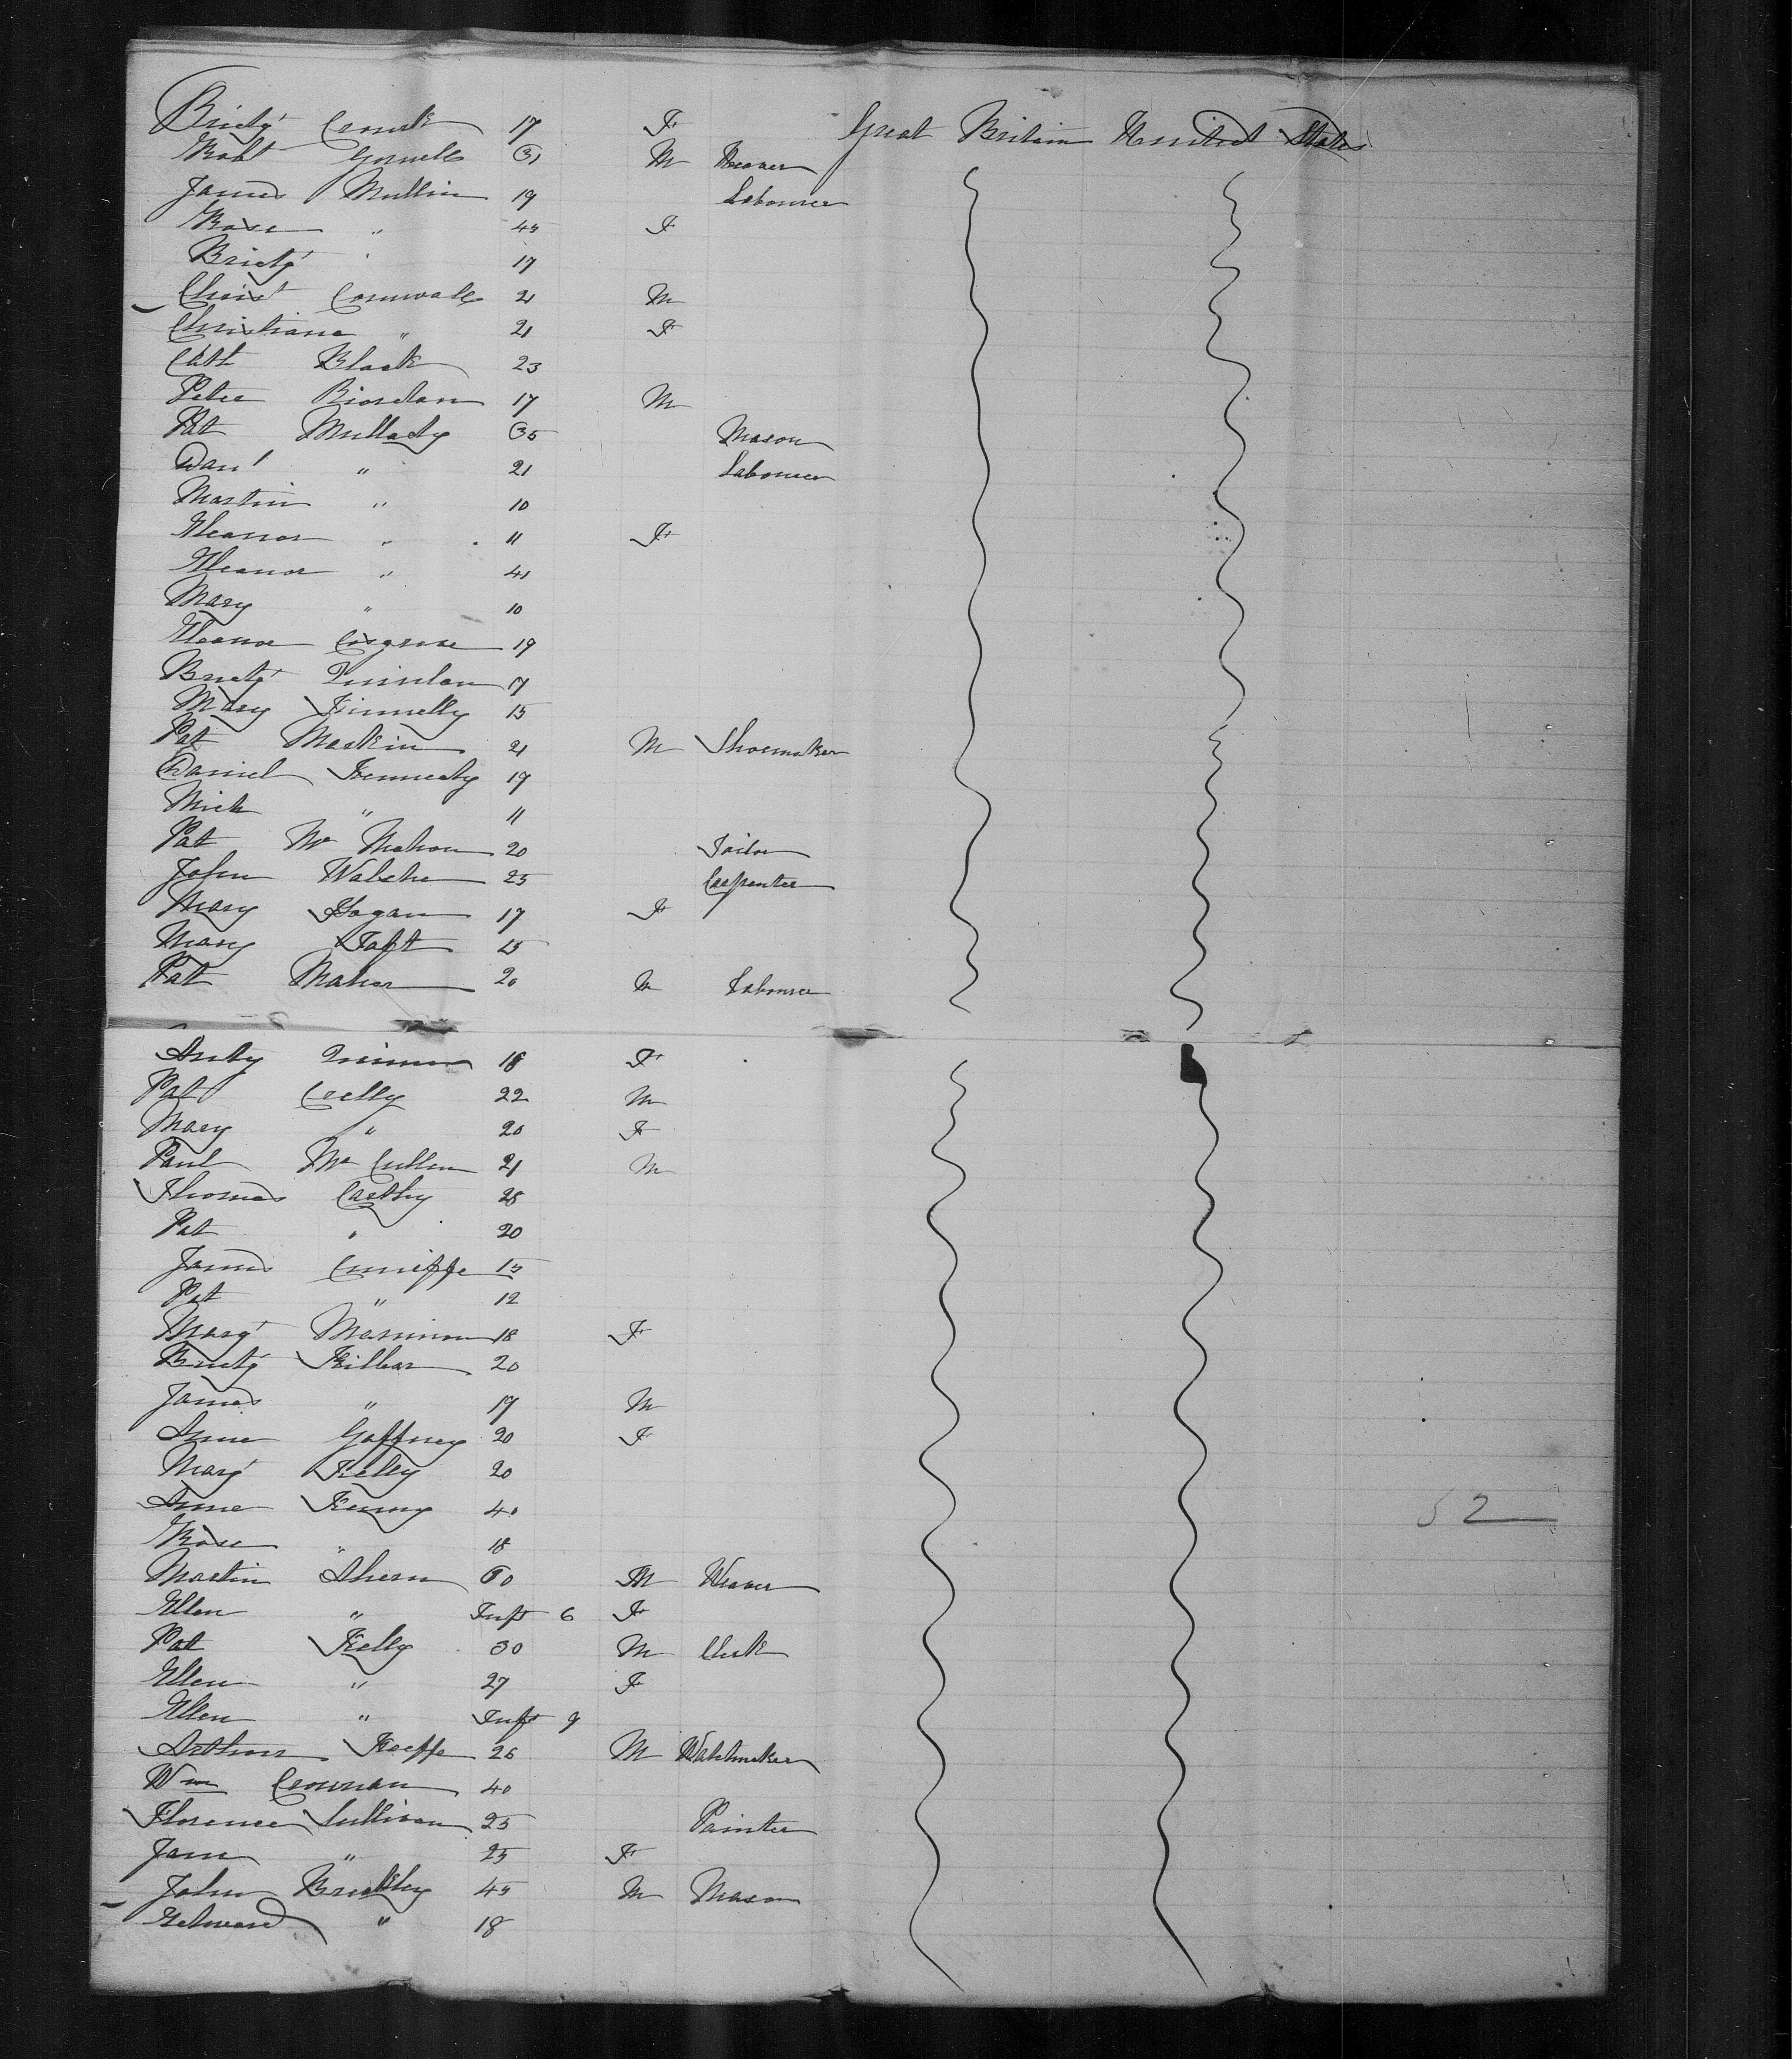 Bridgt 17 F Great Britain United States
Robt Gornell 31 M Weaver
James Mullin 19 Labourer
Rose " 45 F
Bridgt " 17
Christ Cornwall 21 M
Christiana " 21 F
Cath Black 23
Peter Riordan 17 M
Pat Mullady 35 Mason
Danl " 21 Labourer
Martin " 10
Eleanor " 11 F
Eleanor " 41
Mary " 10
Eleanor Cosgrove 19
Bridgt Quinlan 17
Mary Finnelly 15
Pat Maskin 21 M Shoemaker
Daniel Kennedy 19
Mick " 11
Pat Mc Mahon 20 Tailor
John Walshe 25 Carpenter
Mary Hogan 17 F
Mary Taft 15
Pat Maher 20 M Labourer
18 F
Pat Crelly 22 M
Mary " 20 F
Paul Mc Cullen 21 M
Thomas Carthy 28
Pat " 20
James Cunieffe 15
Pat " 12
Margt Mannion 18 F
Bridgt Killian 20
James " 19 M
Anne Gaffney 20 F
Margt Kelly 20
Anne Kenny 40
52
Rose " 18
Martin Ahern 60 M Weaver
Ellen " Inft 6 F
Pat Kelly 30 M Clerk
Ellen " 27 F
Ellen " Inft 9
Arthur Keeffe 26 M Watchmaker
Wm Crownan 40
Florence Sullivan 25 Painter
Jane " 25 F
John Brickley 45 M Mason
Edward " 18